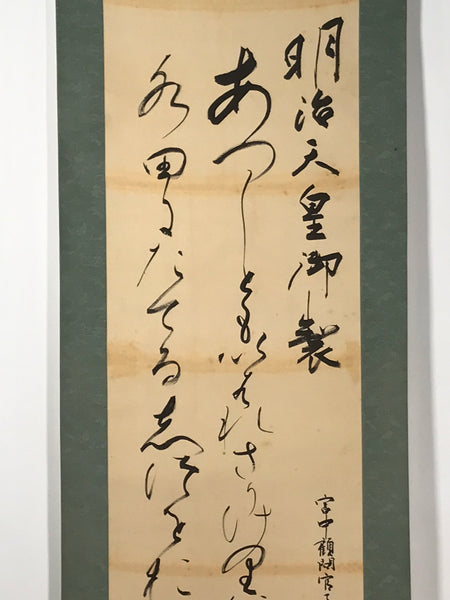 明治天皇御製
あつしともいはれさりけ里
水田にたてる志つをお
宮中顧問官